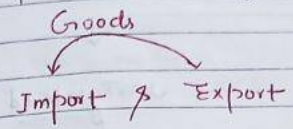 Goods
Import & Export